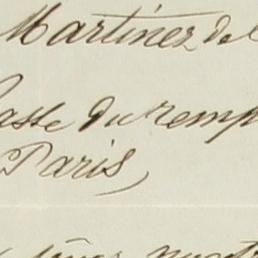 Martinez del
asse du remp
Paris,